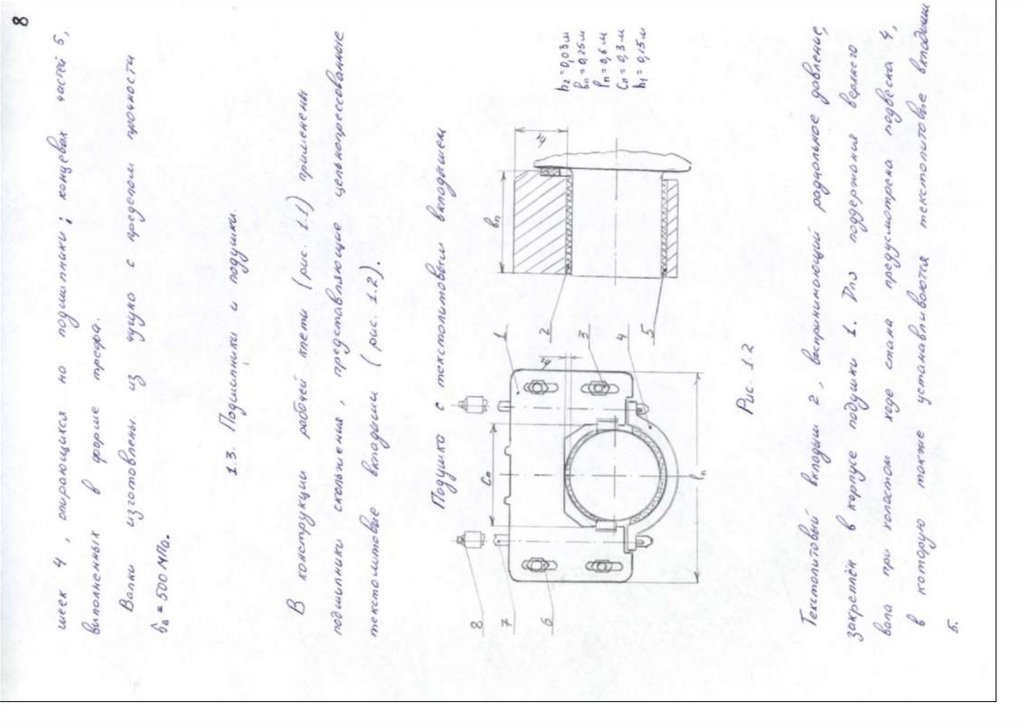 8
шеек 4, опирающихся на подшипники; концевых частей 5,
выполненных в форме трефа.
Валки изготовлены из чугуна с пределом прочности
= 500 МПа.
1.3. Подшипники и подушки.
В конструкции рабочей клети (рис. 1.1) применены
подшипники скольжения, представляющие цельнопрессованные
текстолитовые вкладыши (рис. 1.2).
Подушка с текстолитовым вкладышем
8
7
6
1
2
3
4
5
Cп
lп
bп
h₁
h₂ = 0,03 м
bп = 0,25 м
lп = 0,6 м
Cп = 0,3 м
h₁ = 0,15 м
Рис. 1.2
Текстолитовый вкладыш 2, воспринимающий радиальное давление,
закреплён в корпусе подушки 1. Для поддержания верхнего
вала при холостом ходе стана предусмотрена подвеска 4,
в которую также устанавливаются текстолитовые вкладыши
5.